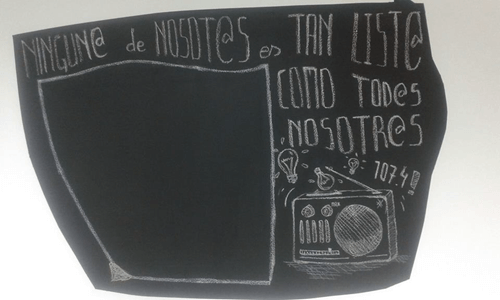 NINGUN@ de NOSOT@S es TAN LIST@
COMO TOD@S
NOSOTR@S
107.4